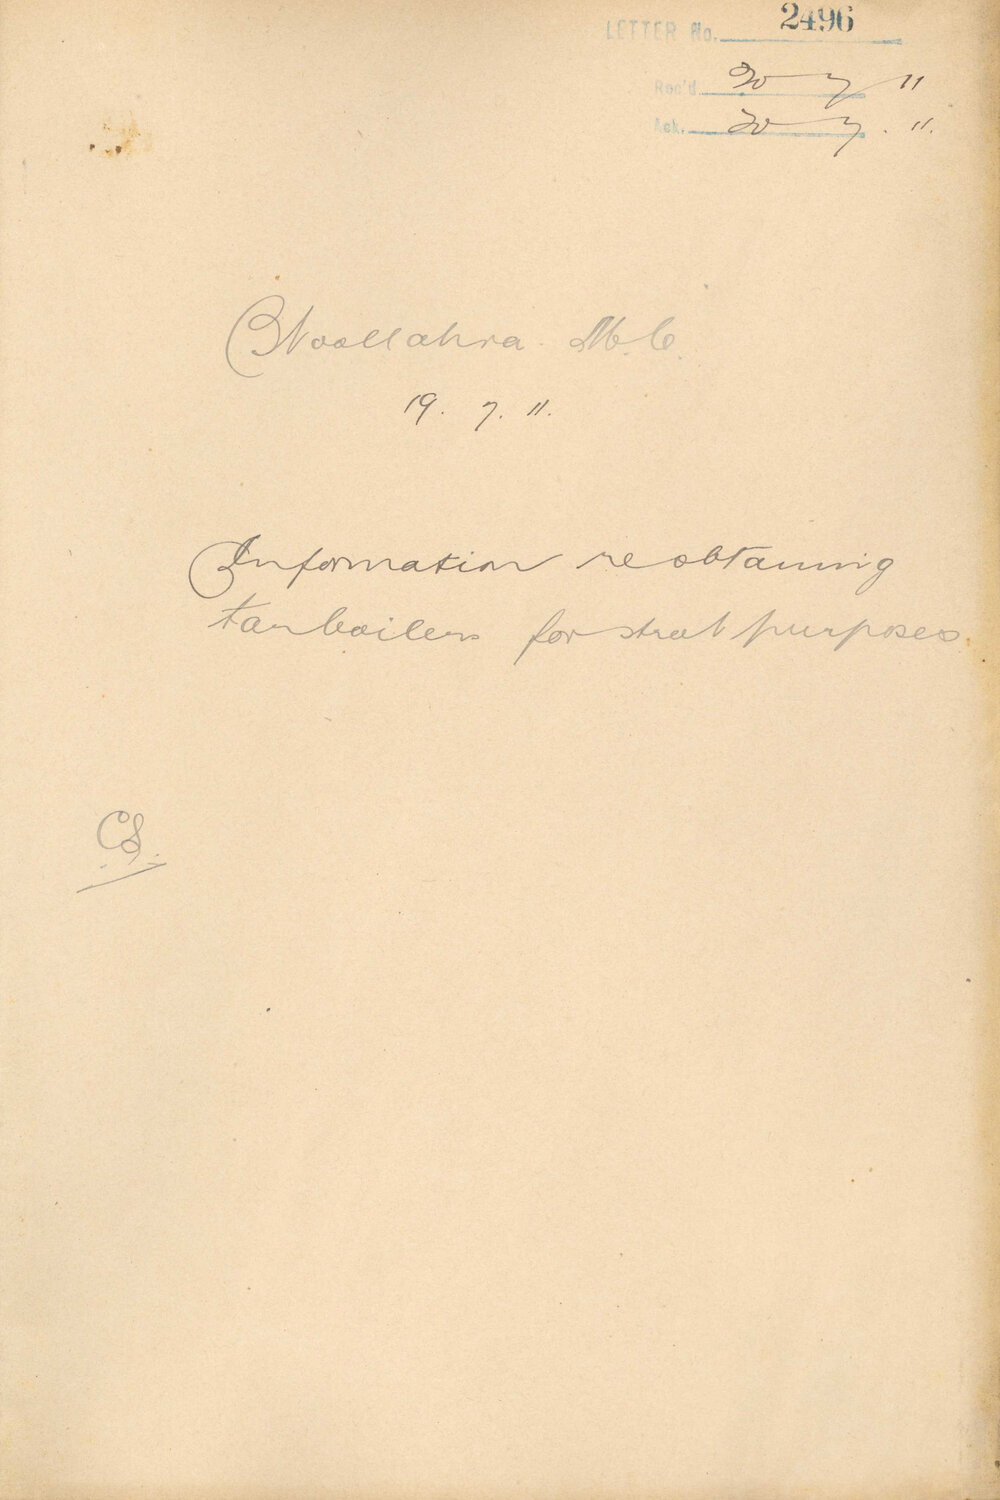 LETTER No. 2496
Rec'd. 20 - 7 / 11
Ack. 20 - 7 . 11.
Woollahra M.C.
19. 7. 11.
Information re obtaining
tar boilers for street purposes
CS.